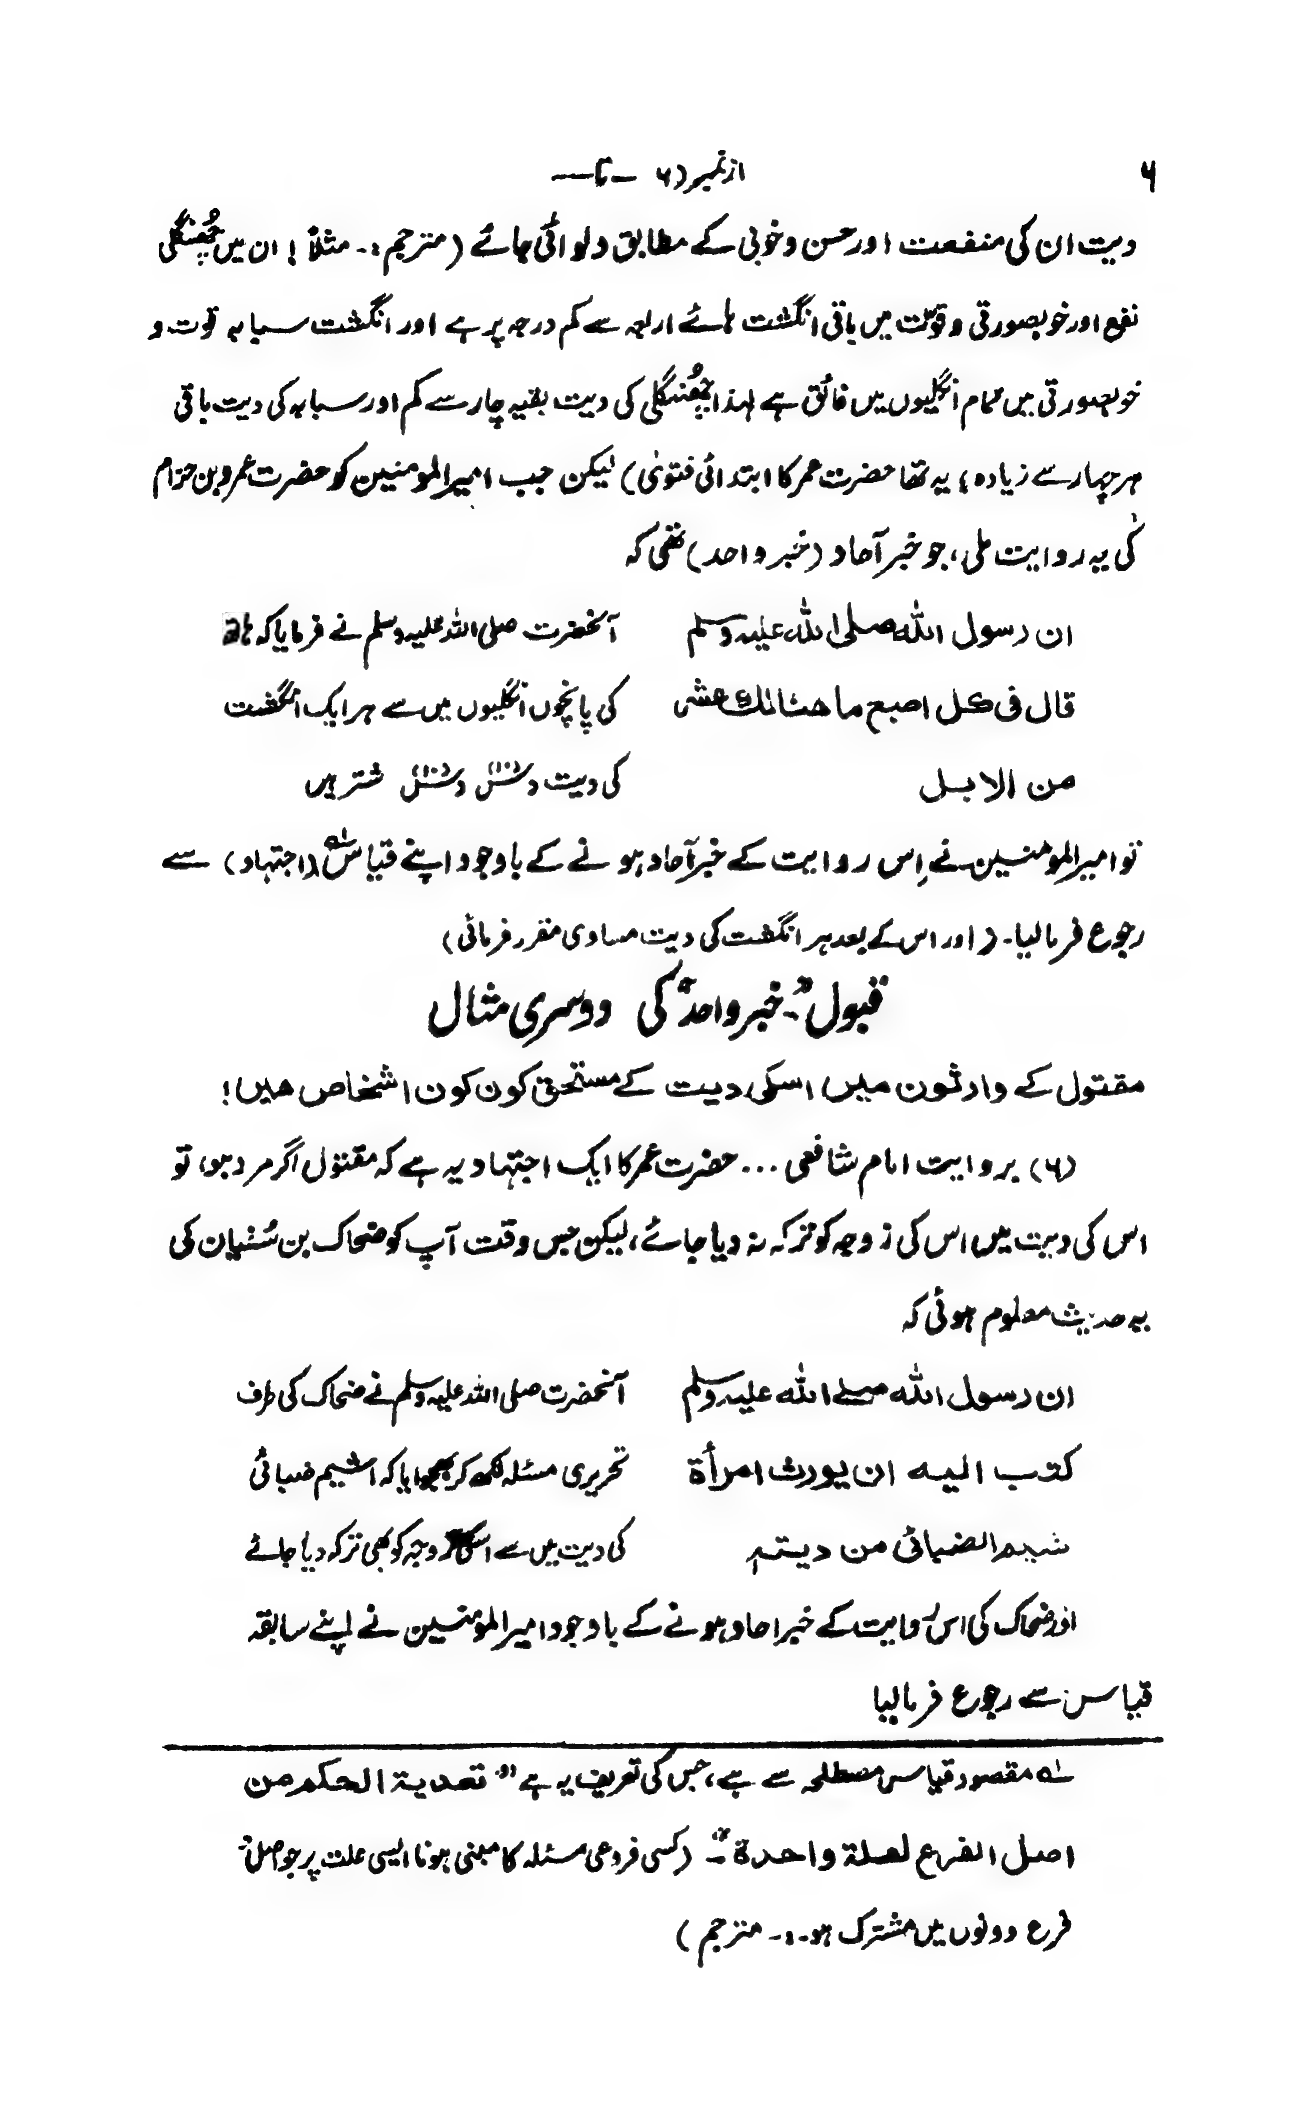 ۶
از نمبر (۶ — تا —
دیت ان کی منفعت اور حسن و خوبی کے مطابق دلوائی جائے (مترجم :۔ مثلاً ! ان میں چھنگلی
نفع اور خوبصورتی و قوت میں باقی انگشت ہائے اربعہ سے کم درجہ پر ہے اور انگشت سبابہ قوت و
خوبصورتی میں تمام انگلیوں میں فائق ہے لہذا چھنگلی کی دیت بقیہ چار سے کم اور سبابہ کی دیت باقی
ہر چہار سے زیادہ ؛ یہ تھا حضرت عمر کا ابتدائی فتویٰ) لیکن جب امیر المومنین کو حضرت عمرو بن حزام
کی یہ روایت ملی، جو خبر آحاد (خبر واحد) تھی کہ
ان رسول اللہ صلی اللہ علیہ وسلم آنحضرت صلی اللہ علیہ وسلم نے فرمایا کہ ہاتھ
قال فی کل اصبع ما ھنالک عشر کی پانچوں انگلیوں میں سے ہر ایک انگشت
من الابل کی دیت دس(۱۰) دس(۱۰) شتر ہیں
تو امیر المومنین نے اِس روایت کے خبر آحاد ہونے کے باوجود اپنے قیاس لہ (اجتہاد) سے
رجوع فرمالیا۔ (اور اس کے بعد ہر انگشت کی دیت مساوی مقرر فرمائی)
قبول "خبر واحد" کی دوسری مثال
مقتول کے وارثون میں اسکی دیت کے مستحق کون کون اشخاص ھیں!
(۶) بروایت امام شافعی ... حضرت عمر کا ایک اجتہاد یہ ہے کہ مقتول اگر مرد ہو، تو
اس کی دیت میں اس کی زوجہ کو ترکہ نہ دیا جائے، لیکن جس وقت آپ کو ضحاک بن سُفیان کی
یہ حدیث معلوم ہوئی کہ
ان رسول اللہ صلے اللہ علیہ وسلم آنحضرت صلی اللہ علیہ وسلم نے ضحاک کی طرف
کتب الیہ ان یورث امرأۃ تحریری مسئلہ لکھ کر بھجوایا کہ اشیم ضبائی
شیم الضبائی من دیتہ کی دیت میں سے اسکی زوجہ کو بھی ترکہ دیا جائے
اور ضحاک کی اس روایت کے خبر احاد ہونے کے باوجود امیر المومنین نے اپنے سابقہ
قیاس سے رجوع فرمالیا
لہ مقصود قیاس مصطلحہ سے ہے، جس کی تعریف یہ ہے "تعدیۃ الحکم من
اصل الفرع لعلۃ واحدۃ"۔ (کسی فروعی مسئلہ کا مبنی ہونا ایسی علت پر جو اصل و
فرع دونوں میں مشترک ہو۔:۔ مترجم)